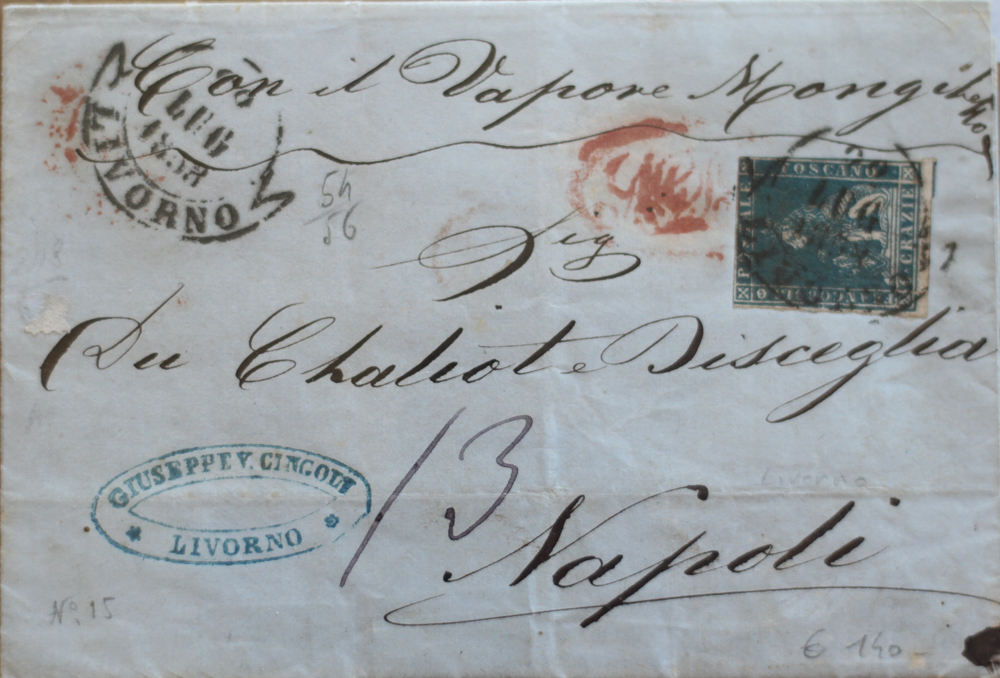 Con il Vapore Mongibello
LUG
1858
LIVORNO
54
56
FRANCOBOLLO POSTALE TOSCANO
CRAZIE
LUG
Sig
Du Chaliot e Bisceglia
13
GIUSEPPE V. CINGOLI
* LIVORNO *
Livorno
Napoli
No. 15
€ 140-